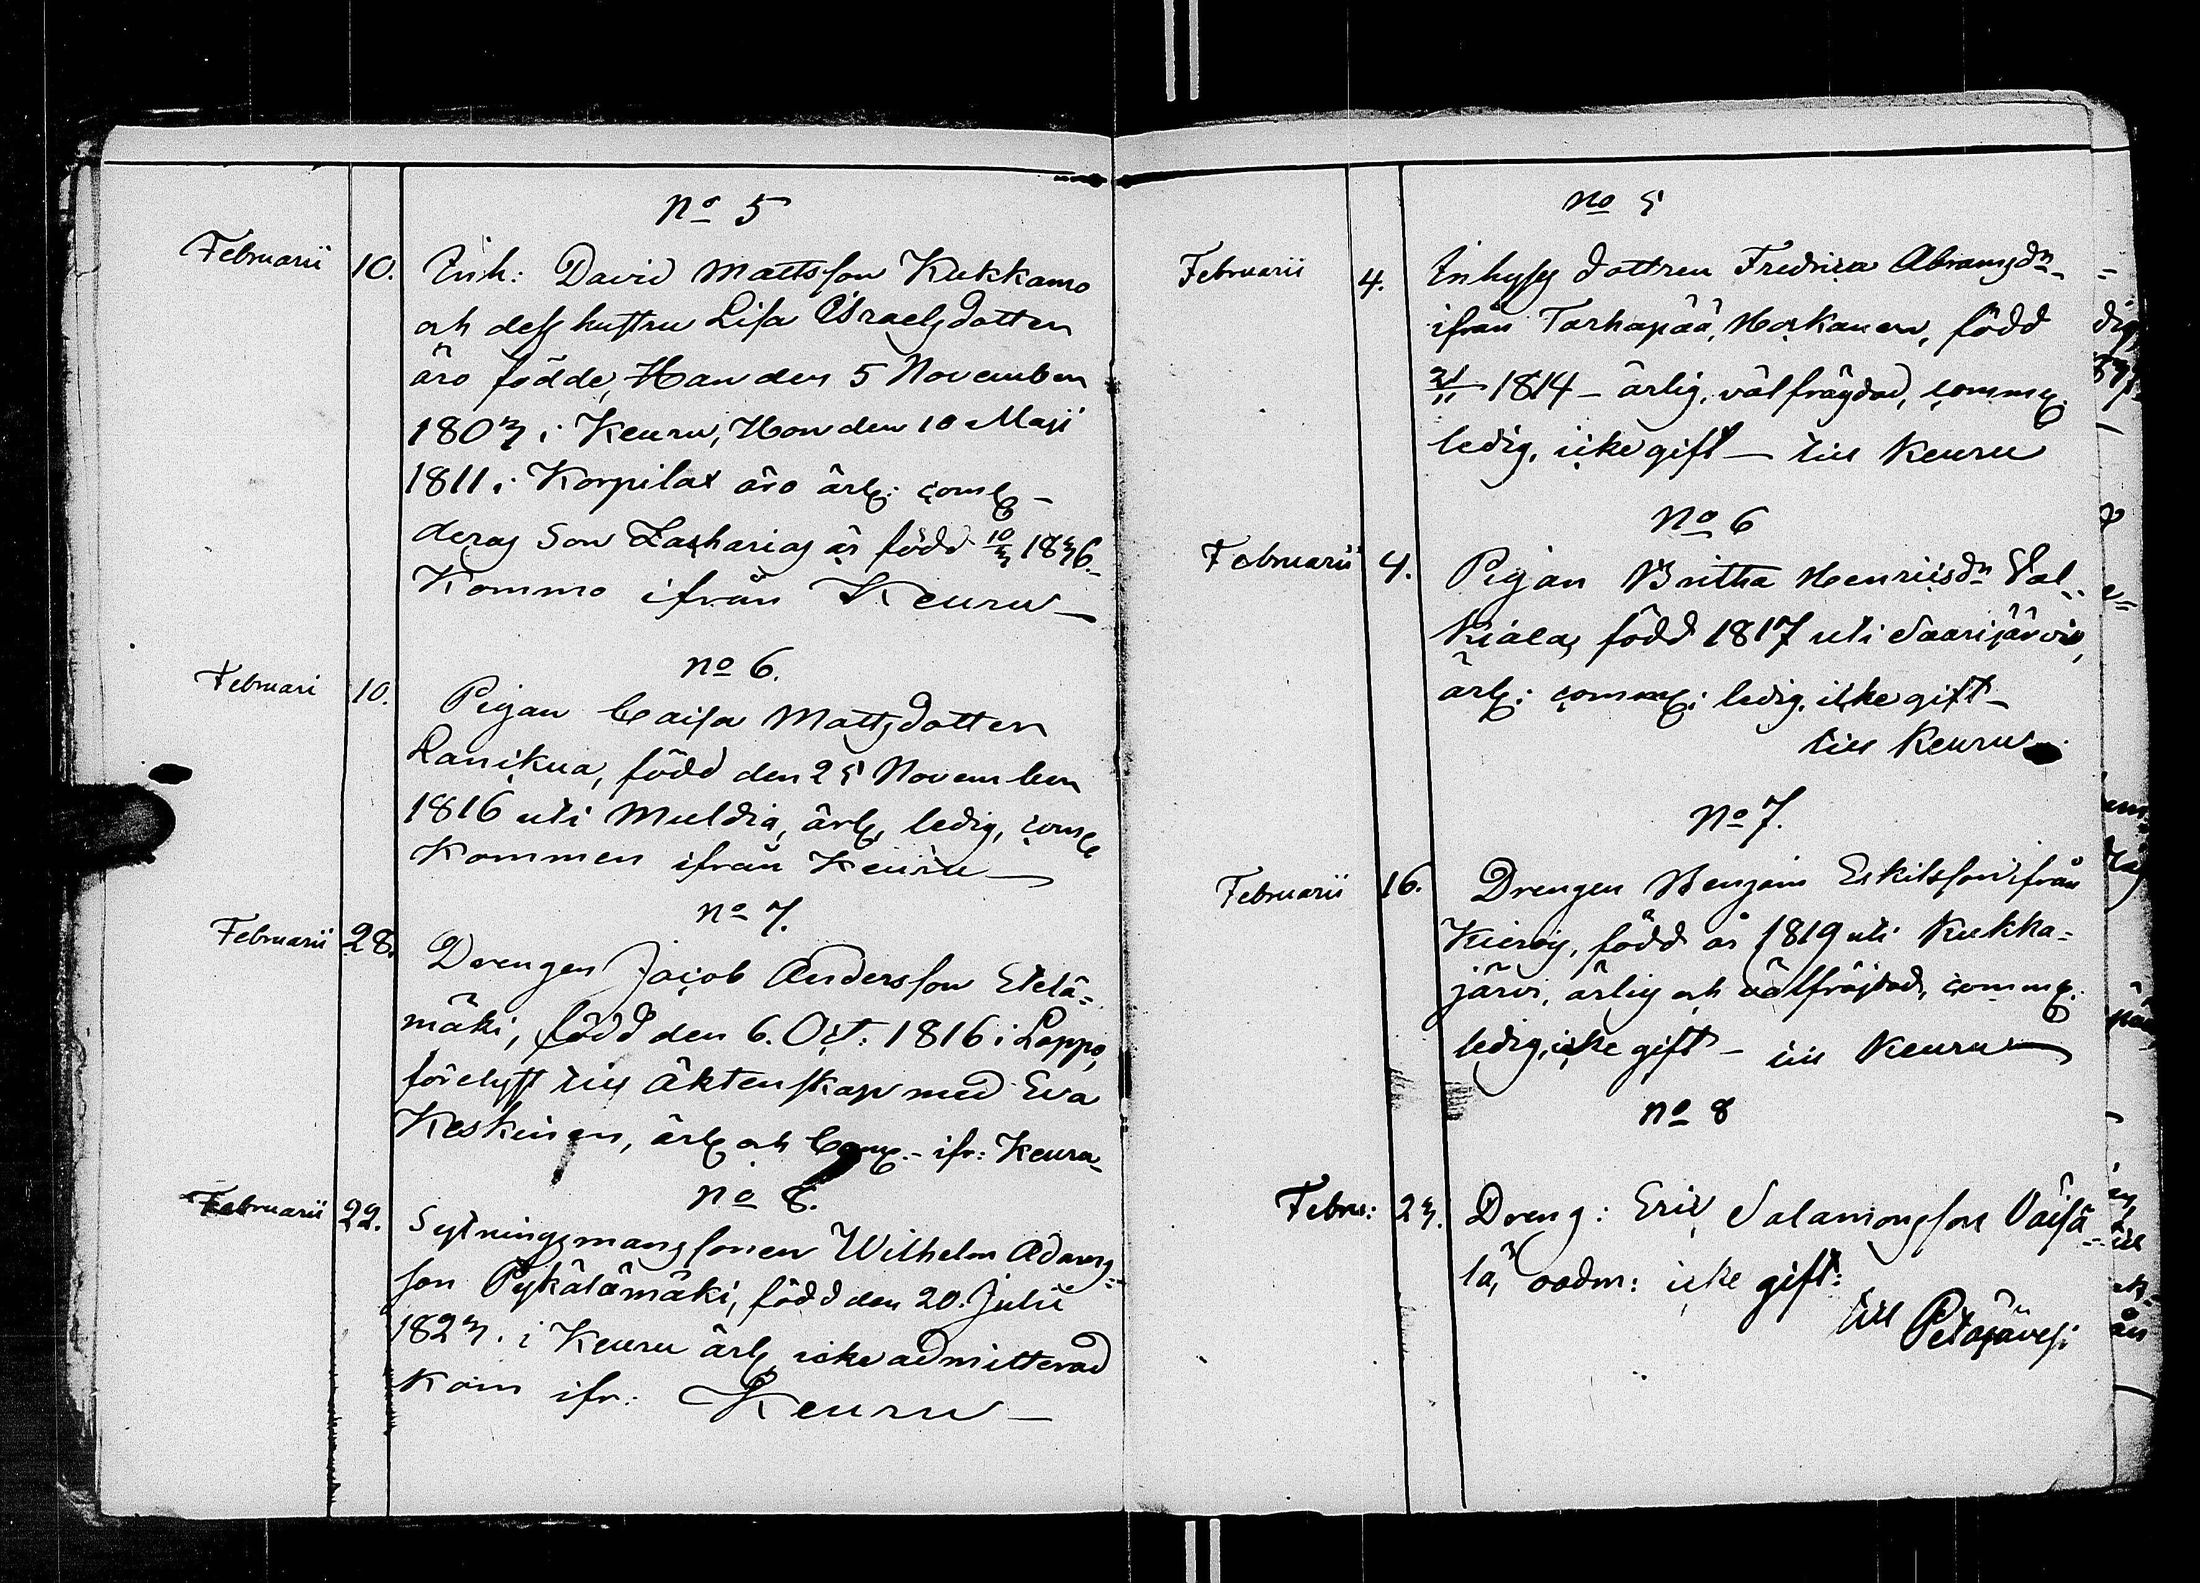 No 5
Februarii 10. Inh: David Mattsson Kukkamo
och dess hustru Lisa Israelsdotter
äro födde, Han den 5 November
1803 i Keuru, Hon den 10 Maji
1811 i Korpilax äro ärl: com
deras Son Zacharias är född 10/3 1836.
Kommo ifrån Keuru
No 6.
Februari 10. Pigan Caisa Mattsdotter
född den 25 November
1816 uti Muldia, ärl, ledig, com
Kommen ifrån Keuru
No 7.
Februarii 28. Drengen Jacob Andersson Etelä=
mäki, född den 6. Oct: 1816 i Lappo,
förelyst till äktenskap med Eva
Keskinen, ärl och Comm.- ifr: Keuru
No 8.
Februarii 22. Sytningsmans sonen Wilhelm Adams=
son Pykälämäki, född den 20. Julii
1823. i Keuru ärl icke admitterad
Kom ifr: Keuru
No 5
Februarii 4. Inhyses dottren Fredrica Abramsdr
ifrån Tarhapää, född
21/11 1814 - ärlig, välfrägdad, comm.
ledig, icke gift - till Keuru
No 6
Februarii 4. Pigan Britha Henricsdr Val=
kiala, född 1817 uti Saarijärvi,
ärl: comm: ledig, icke gift -
till Keuru
No 7.
Februarii 16. Drengen Benjam Eskilsson ifrån
född år 1819 uti Kukka=
järvi, ärlig och välfräjdad, comm.
ledig, icke gift - till Keuru
No 8
Febru: 23. Dreng: Eric Salamonsson Väisä=
lä, oadm: icke gift:
till Petäjävesi